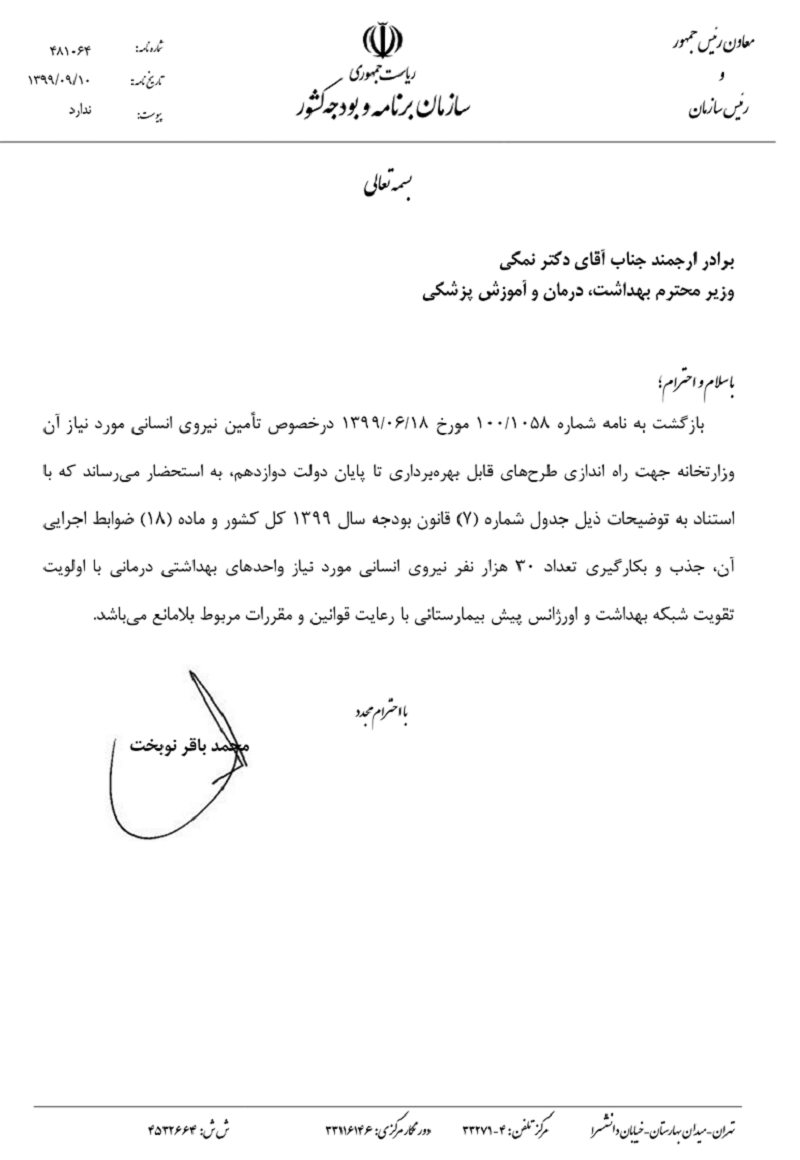 معاون رئیس جمهور
و
رئیس سازمان
ریاست جمهوری
سازمان برنامه و بودجه کشور
شماره نامه: ۴۸۱۰۶۴
تاریخ نامه: ۱۳۹۹/۰۹/۱۰
پیوست: ندارد
بسمه تعالی
برادر ارجمند جناب آقای دکتر نمکی
وزیر محترم بهداشت، درمان و آموزش پزشکی
باسلام و احترام؛
بازگشت به نامه شماره ۱۰۰/۱۰۵۸ مورخ ۱۳۹۹/۰۶/۱۸ درخصوص تأمین نیروی انسانی مورد نیاز آن
وزارتخانه جهت راه اندازی طرح‌های قابل بهره‌برداری تا پایان دولت دوازدهم، به استحضار می‌رساند که با
استناد به توضیحات ذیل جدول شماره (۷) قانون بودجه سال ۱۳۹۹ کل کشور و ماده (۱۸) ضوابط اجرایی
آن، جذب و بکارگیری تعداد ۳۰ هزار نفر نیروی انسانی مورد نیاز واحدهای بهداشتی درمانی با اولویت
تقویت شبکه بهداشت و اورژانس پیش بیمارستانی با رعایت قوانین و مقررات مربوط بلامانع می‌باشد.
بااحترام مجدد
محمد باقر نوبخت
تهران-میدان بهارستان-خیابان دانشسرا
مرکز تلفن: ۴-۳۳۲۷۱
دورنگار مرکزی: ۳۳۹۱۶۱۴۶
ش ش: ۴۵۳۲۶۶۴